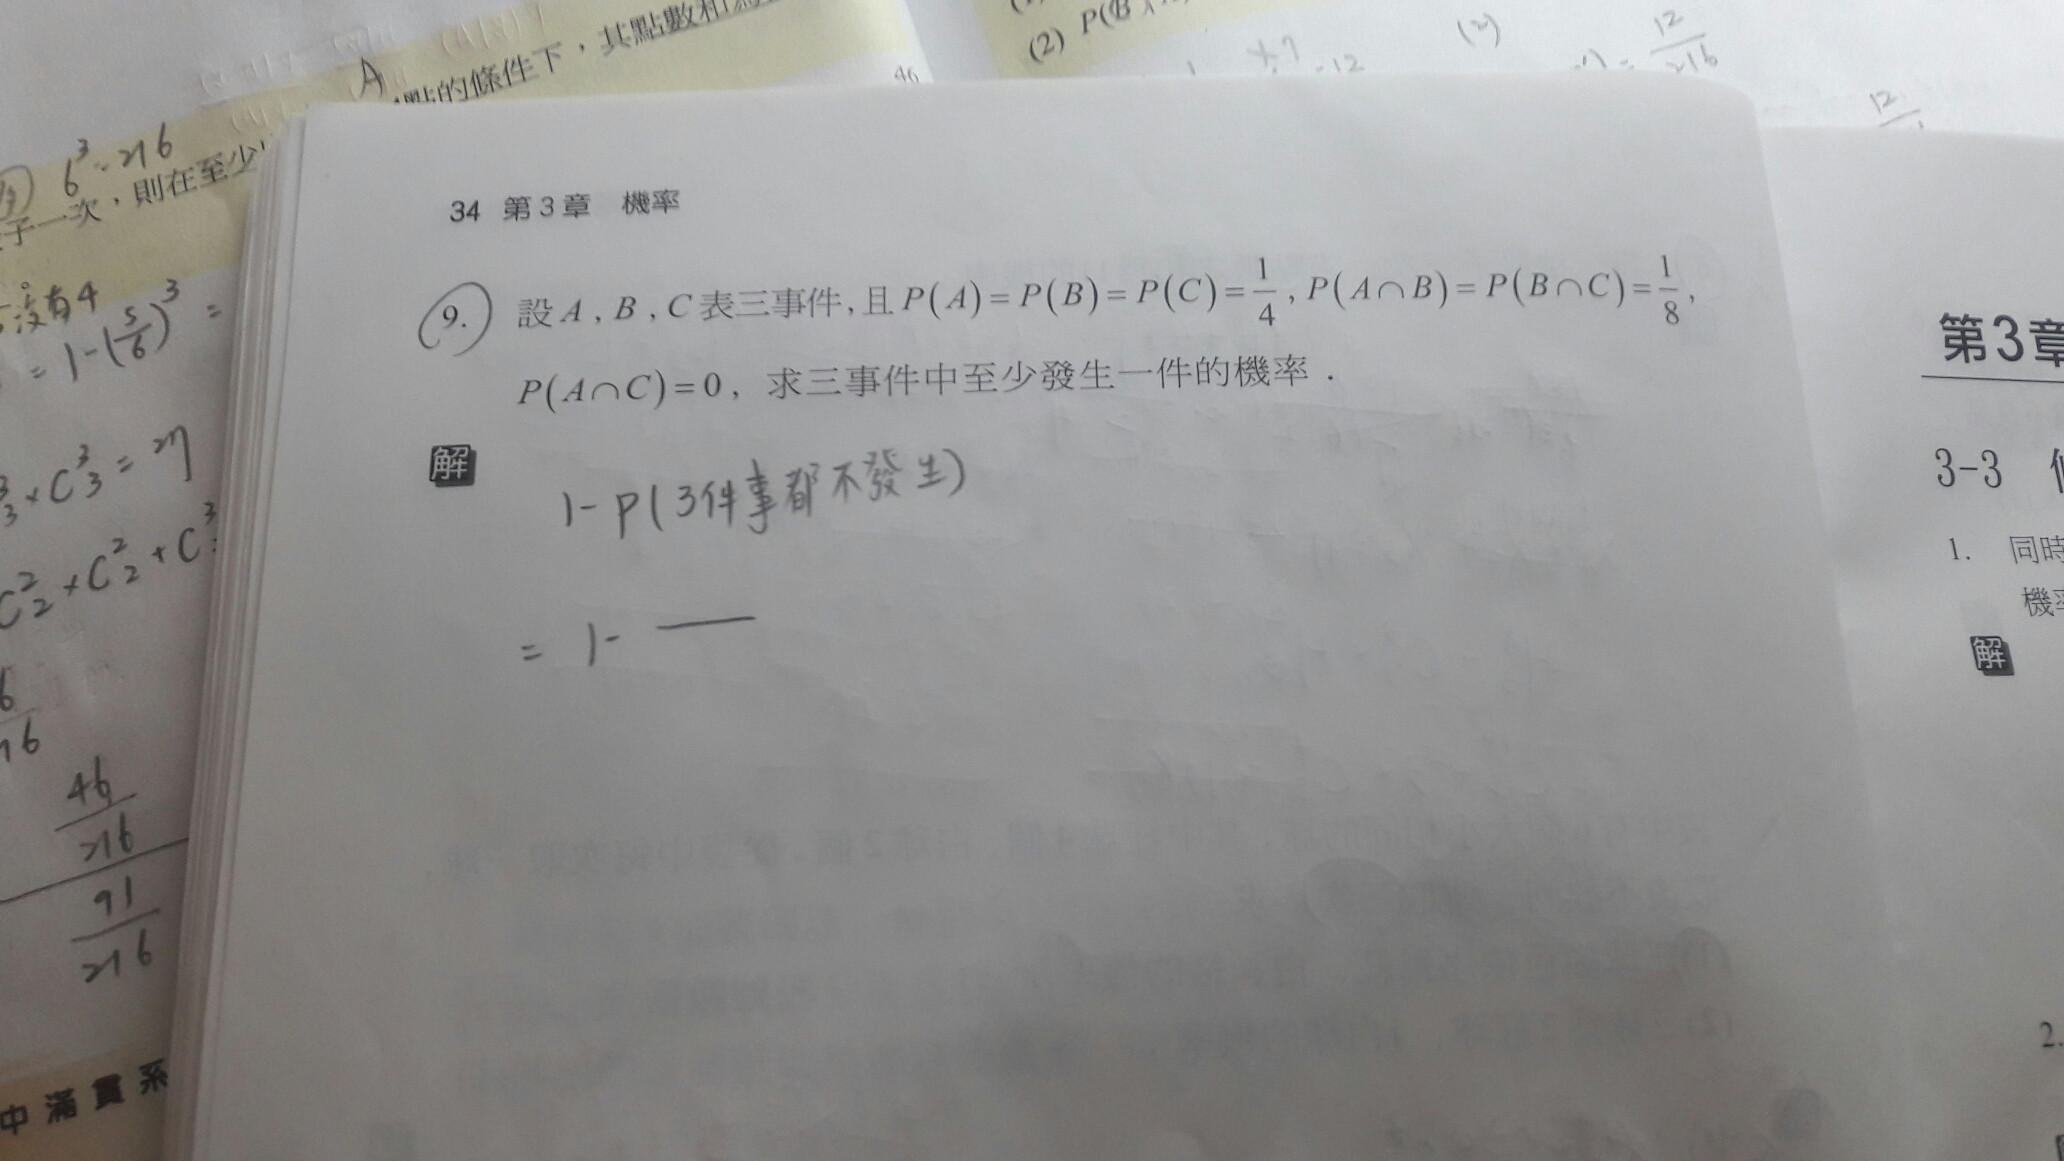 點的條件下，其點數和
A
6³=216
子一次，則在至少
沒有4
= 1-(5/6)³ =
C³₃=27
C²₂+C²₂+C³
46/216
91/216
中滿貫系
(2) P(B
(2)
12/216
=12
46
12
34 第3章 機率
9. 設A,B,C表三事件,且P(A)=P(B)=P(C)=1/4,P(A∩B)=P(B∩C)=1/8,
P(A∩C)=0, 求三事件中至少發生一件的機率.
解
1-P(3件事都不發生)
= 1- —
第3章
3-3
1. 同時
機率
解
2.